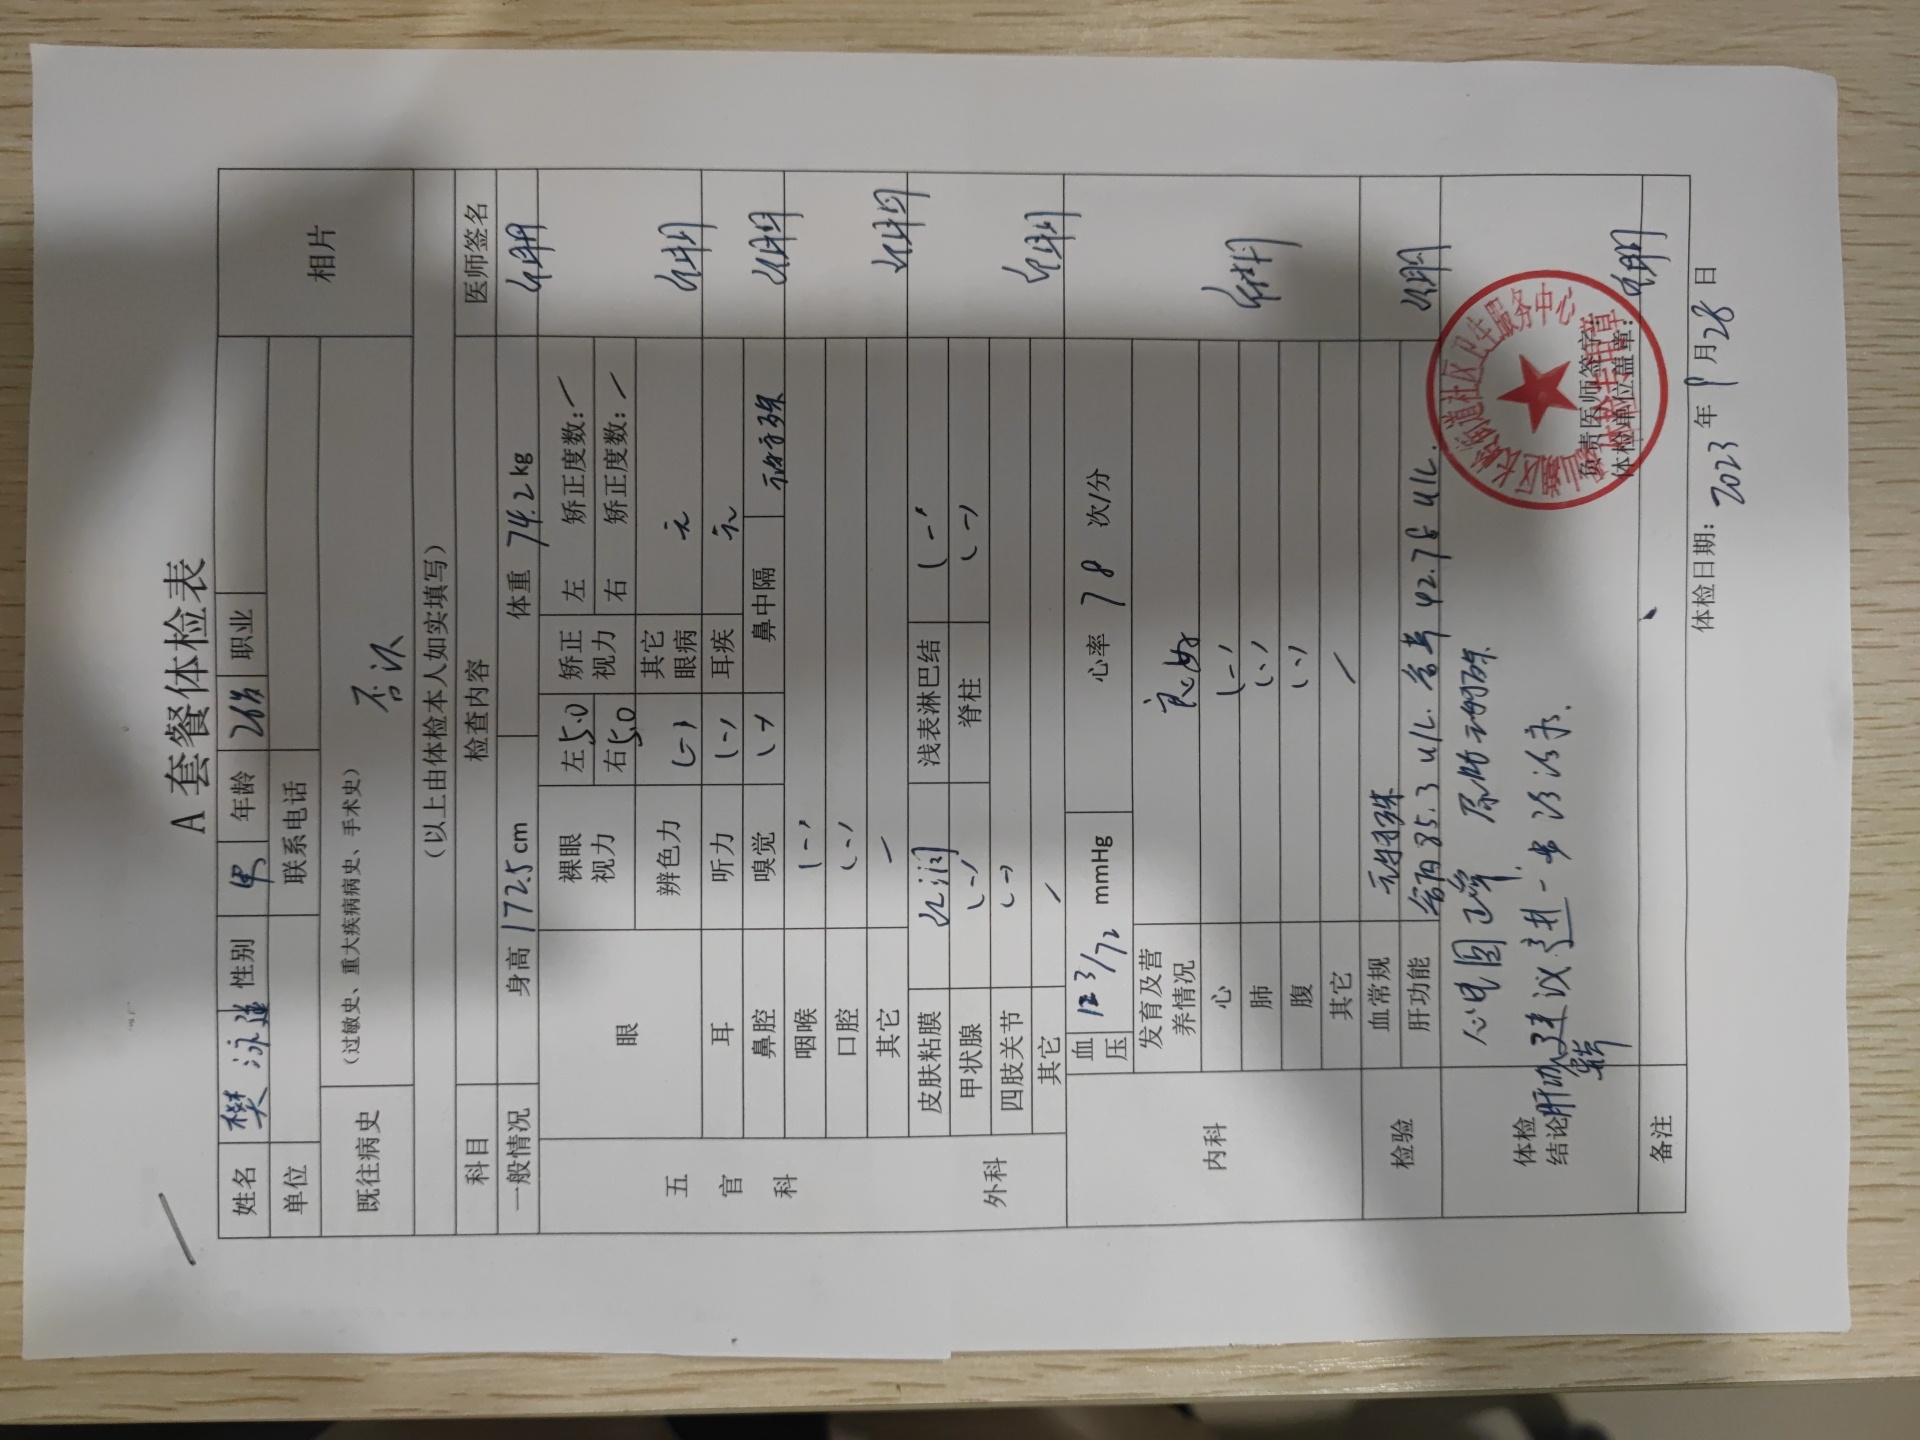 A 套餐体检表
姓名 樊泳 性别 男 年龄 26岁 职业
相片
单位 联系电话
既往病史 （过敏史、重大疾病病史、手术史） 否认
（以上由体检本人如实填写）
科目 检查内容 医师签名
一般情况 身高 172.5 cm 体重 74.2 kg
五官科
眼 裸眼视力 左 5.0 矫正视力 左 矫正度数: /
右 5.0 右 矫正度数: /
辨色力 (-) 其它眼病 无
耳 听力 (-) 耳疾 无
鼻腔 嗅觉 (-) 鼻中隔
咽喉 (-)
口腔 (-)
其它 /
外科
皮肤粘膜 红润 浅表淋巴结 (-)
甲状腺 (-) 脊柱 (-)
四肢关节 (-)
其它 /
内科
血压 123/72 mmHg 心率 78 次/分
发育及营养情况 良好
心 (-)
肺 (-)
腹 (-)
其它 /
检验
血常规
肝功能 谷丙 85.3 U/L. 谷草 42.78 U/L.
体检结论 心电图正常
肝功 建议进一步诊疗.
负责医师签字
体检单位盖章:
长岭街道社区卫生服务中心
体检专用章
备注
体检日期: 2023 年 9 月 28 日